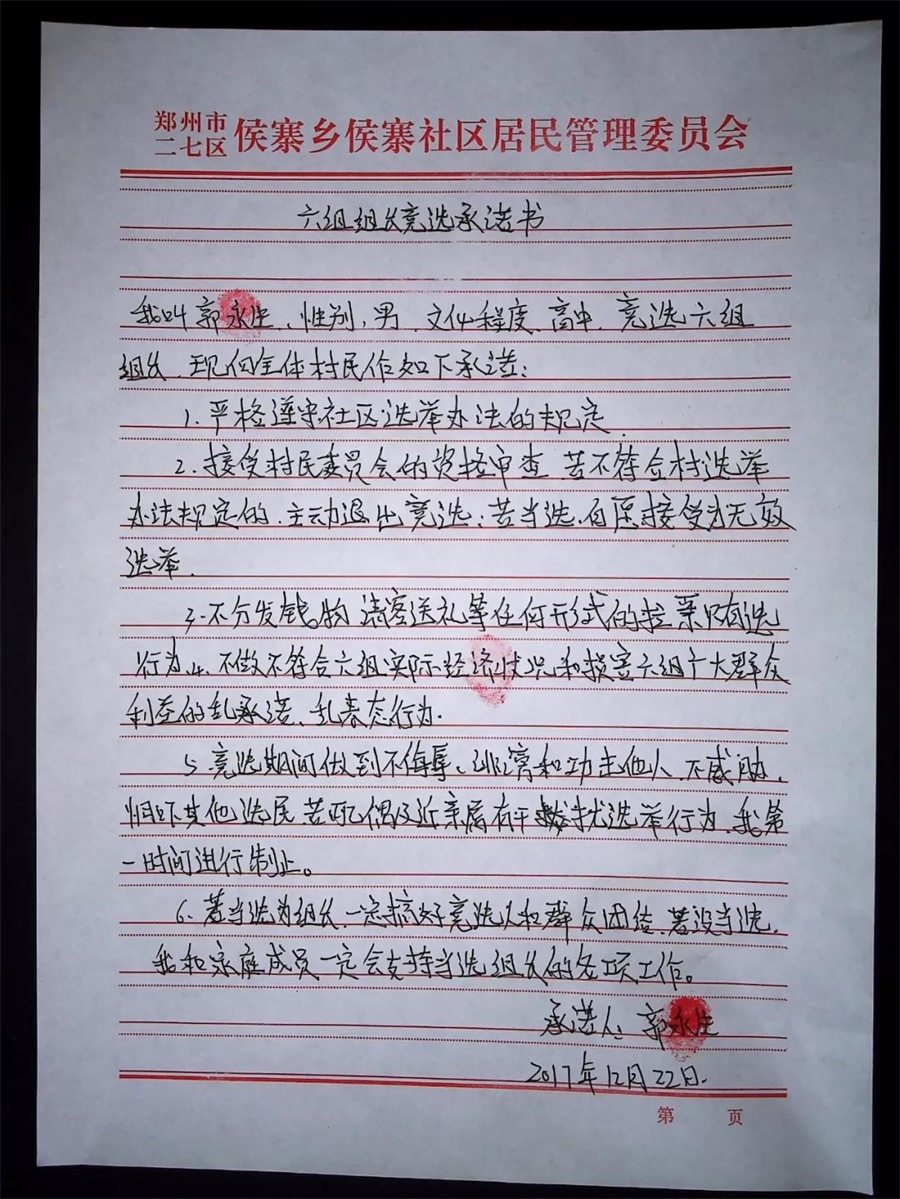 郑州市
二七区 侯寨乡侯寨社区居民管理委员会
六组组长竞选承诺书
我叫郭永生、性别,男、文化程度、高中、竞选六组
组长、现向全体村民作如下承诺:
1.严格遵守社区选举办法的规定.
2.接受村民委员会的资格审查 若不符合村选举
办法规定的、主动退出竞选;若当选、自愿接受为无效
选举.
3.不分发钱物 请客送礼等任何形式的拉票贿选
行为、4.不做不符合六组实际经济状况和损害六组广大群众
利益的乱承诺、乱表态行为.
5.竞选期间做到不侮辱、诽谤和攻击他人、不威胁、
恐吓其他选民 若配偶及近亲属有干扰选举行为、我第
一时间进行制止。
6.若当选为组长、一定搞好竞选人和群众团结、若没当选、
我和家庭成员一定会支持当选组长的各项工作。
承诺人:郭永生
2017年12月22日.
第 页